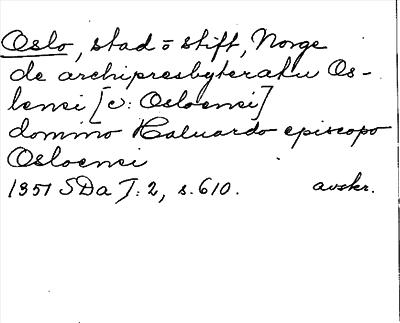 Oslo, stad o stift, Norge
de archipresbyteratu Os-
lensi [ɔ: Osloensi]
domino Haluardo episcopo
Osloensi
1351 SDa I: 2, s. 610. avskr.